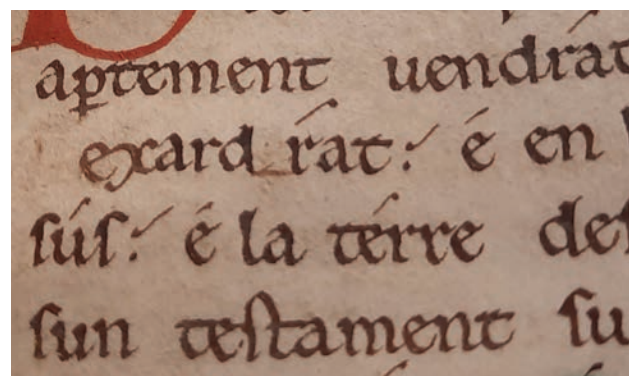 apertement uendrat
exardrat: é en
sús: é la terre des
sun testament su